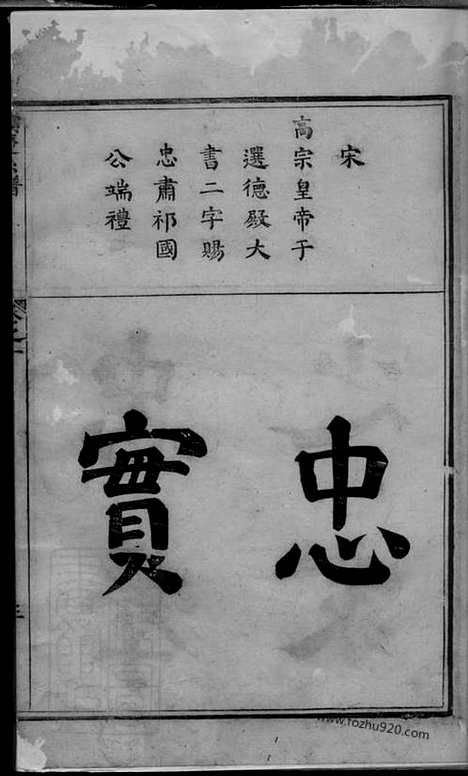 宋
高宗皇帝于
選德殿大
書二字賜
忠肅祁國
公端禮
忠實
三
www.fozhu920.com